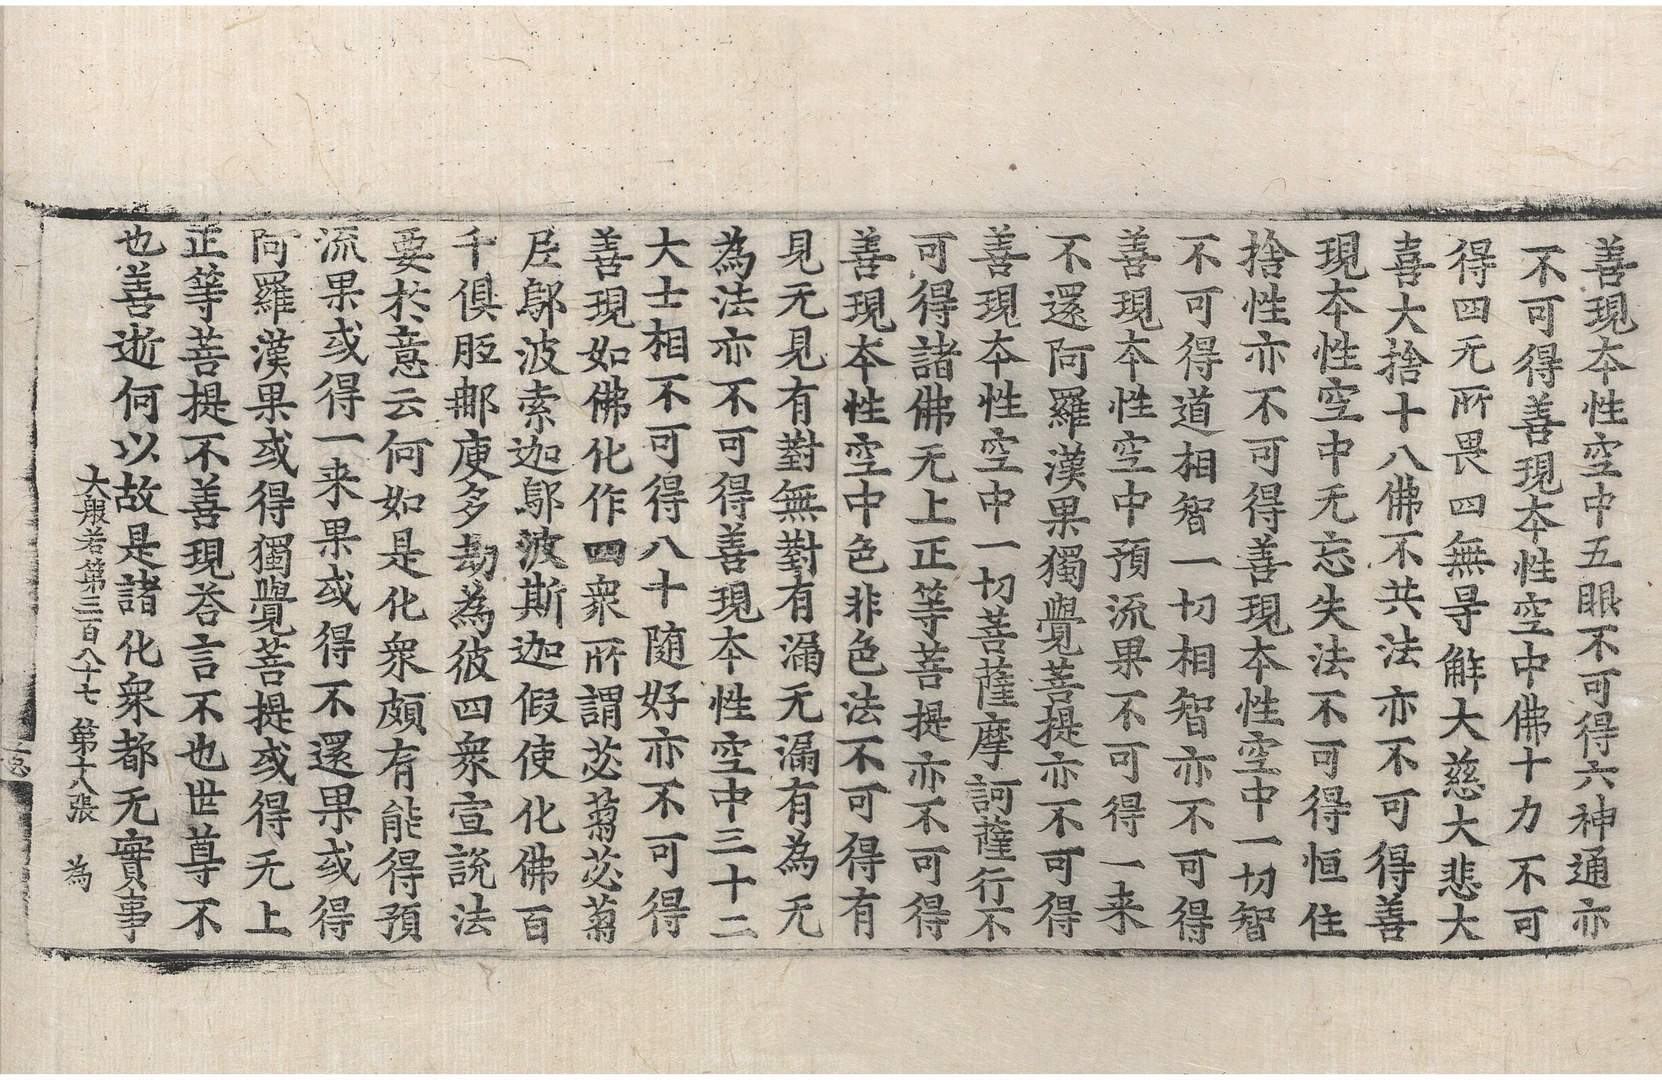 善現本性空中五眼不可得六神通亦
不可得善現本性空中佛十力不可
得四无所畏四無㝵解大慈大悲大
喜大捨十八佛不共法亦不可得善
現本性空中无忘失法不可得恒住
捨性亦不可得善現本性空中一切智
不可得道相智一切相智亦不可得
善現本性空中預流果不可得一来
不還阿羅漢果獨覺菩提亦不可得
善現本性空中一切菩薩摩訶薩行不
可得諸佛无上正等菩提亦不可得
善現本性空中色非色法不可得有
見无見有對無對有漏无漏有為无
為法亦不可得善現本性空中三十二
大士相不可得八十随好亦不可得
善現如佛化作四衆所謂苾蒭苾蒭
尼鄔波索迦鄔波斯迦假使化佛百
千俱胝那庾多劫為彼四衆宣說法
要於意云何如是化衆頗有能得預
流果或得一来果或得不還果或得
阿羅漢果或得獨覺菩提或得无上
正等菩提不善現荅言不也世尊不
也善逝何以故是諸化衆都无實事
大般若第三百八十七 第十八張 為